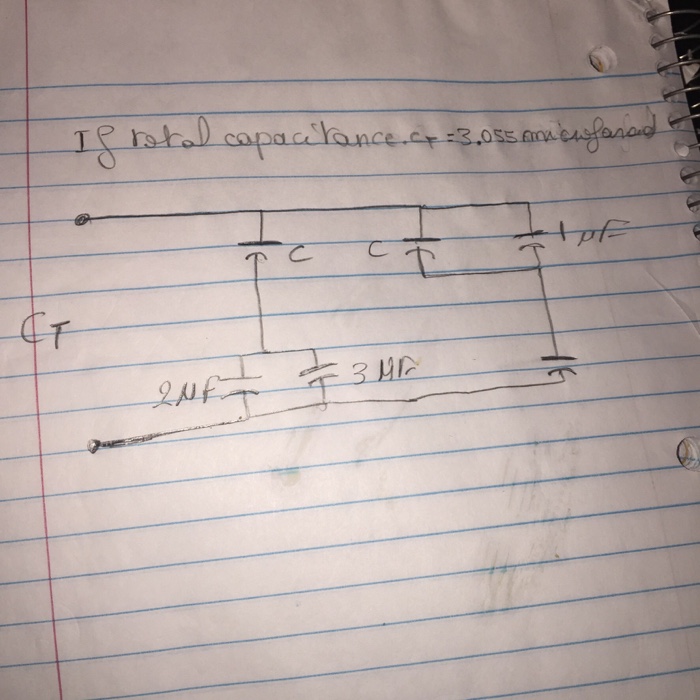 If total capacitance. CT = 3.055 microfarad
C C 1 µF
CT
2µF 3 µF